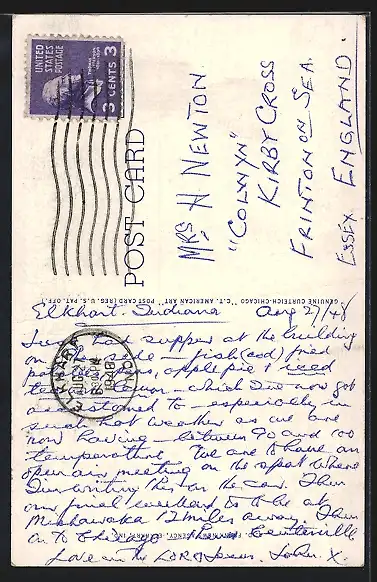 UNITED
STATES
POSTAGE
3 CENTS 3
POST CARD
MRS H NEWTON.
"COLWYN"
KIRBY CROSS
FRINTON ON SEA.
ESSEX ENGLAND.
GENUINE CURTEICH-CHICAGO "C.T. AMERICAN ART" POST CARD (REG. U.S. PAT. OFF.)
Elkhart. Indiana Aug 27/48
ELKHART
AUG 27
1948
IND.
had supper at the building
on the side - fish (cod) fried
apple pie & iced
lemon - which I'm now got
accustomed to - especially in
such hot weather as we are
now having - between 90 and 100
temperature. We are to have an
open air meeting on the spot where
I'm writing this in the car. Then
our final to be at
Mishawaka 12 miles away. Then
on to Chicago
Love in the LORD Jesus. John. X.